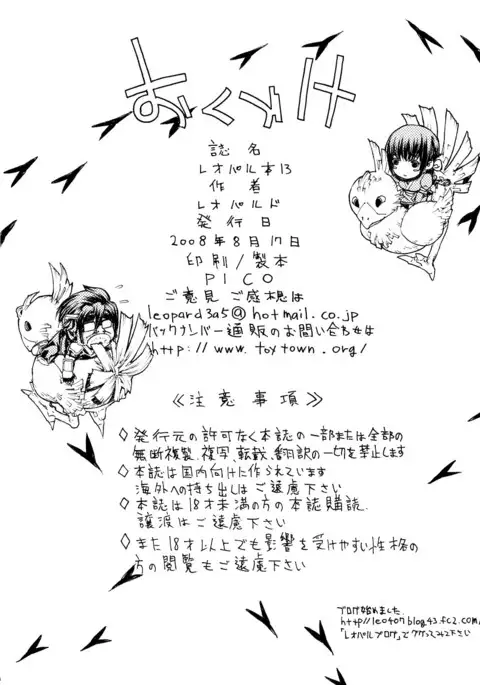 誌名
レオパル本13
作者
レオパルド
発行日
2008年8月17日
印刷/製本
PICO
ご意見ご感想は
leopard3a5@hotmail.co.jp
バックナンバー通販のお問い合わせは
http://www.toytown.org/
≪注意事項≫
◇発行元の許可なく本誌の一部または全部の
無断複製、複写、転載、翻訳の一切を禁止します
◇本誌は国内向けに作られています
海外への持ち出しはご遠慮下さい
◇本誌は18才未満の方の本誌購読、
譲渡はご遠慮下さい
◇また18才以上でも影響を受けやすい性格の
方の閲覧もご遠慮下さい
ブログ始めました。
http://leo407.blog43.fc2.com/
「レオパルブログ」でググってみて下さい